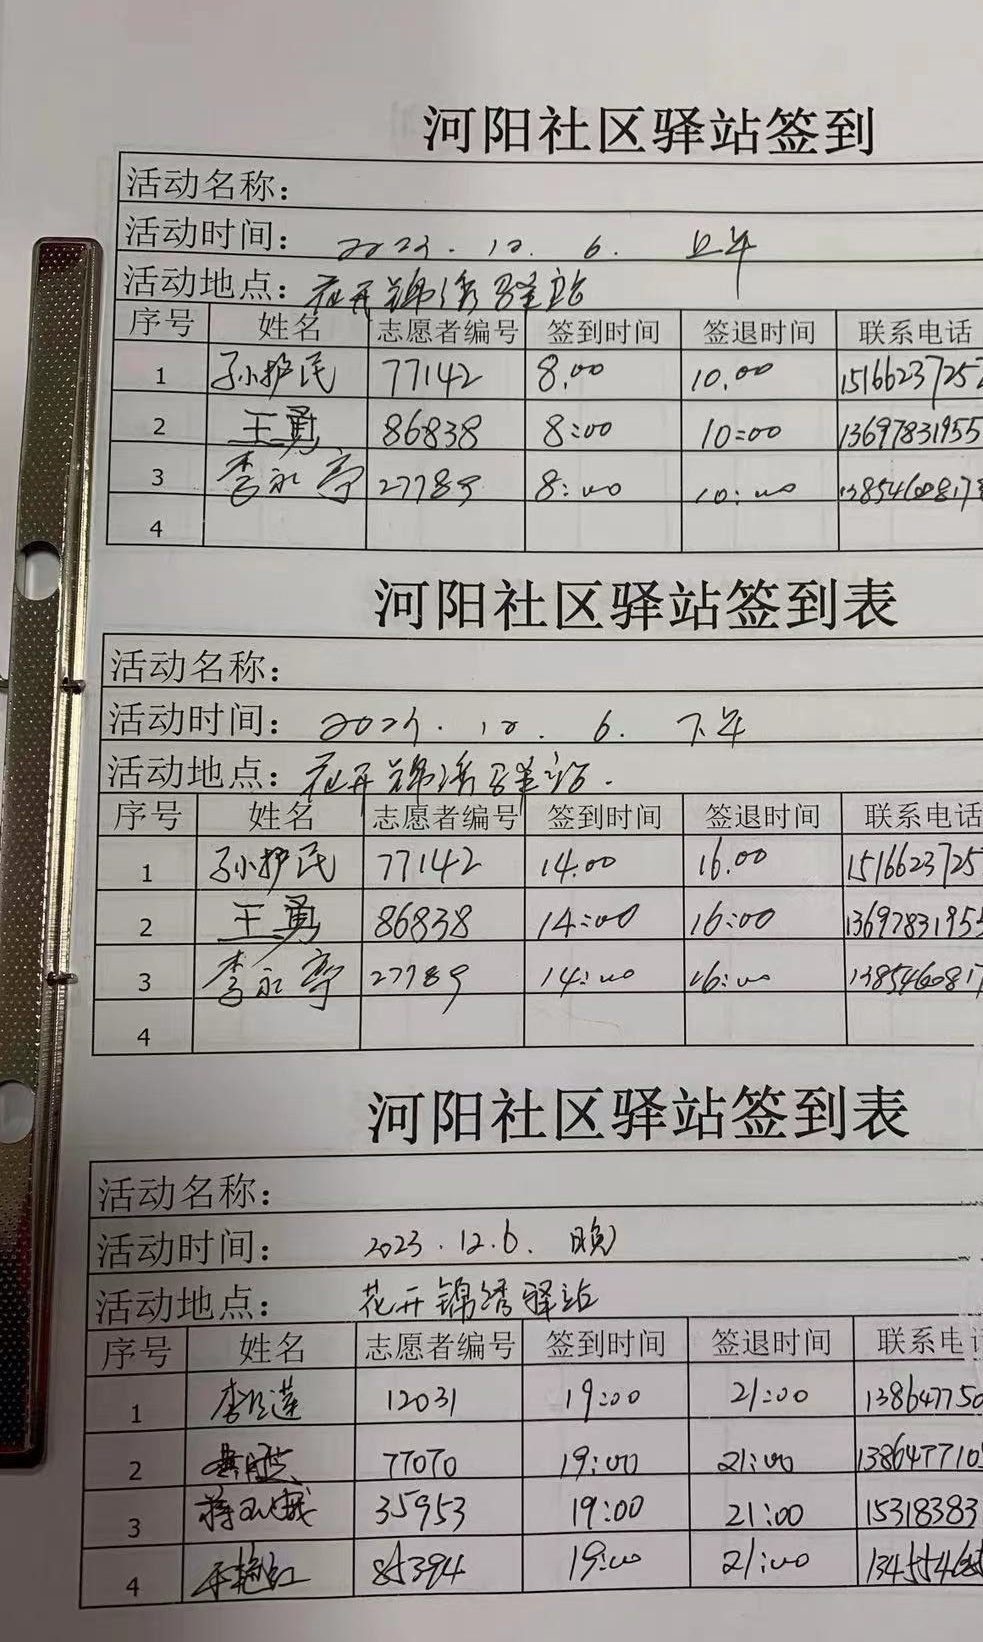 河阳社区驿站签到
活动名称:
活动时间: 2023. 12. 6. 上午
活动地点: 花开锦绣驿站
序号 姓名 志愿者编号 签到时间 签退时间 联系电话
1 孙护民 77142 8.00 10.00 1516623725
2 王勇 86838 8:00 10:00 13697831955
3 李永亭 27789 8:00 10:00 1385460817
4
河阳社区驿站签到表
活动名称:
活动时间: 2023. 12. 6. 下午
活动地点: 花开锦绣驿站.
序号 姓名 志愿者编号 签到时间 签退时间 联系电话
1 孙护民 77142 14.00 16.00 1516623725
2 王勇 86838 14:00 16:00 1369783195
3 李永亭 27789 14:00 16:00 1385460817
4
河阳社区驿站签到表
活动名称:
活动时间: 2023.12.6. 晚
活动地点: 花开锦绣驿站
序号 姓名 志愿者编号 签到时间 签退时间 联系电
1 12031 19:00 21:00 138647750
2 77070 19:00 21:00 138647710
3 35953 19:00 21:00 15318383
4 于艳红 85394 19:00 21:00